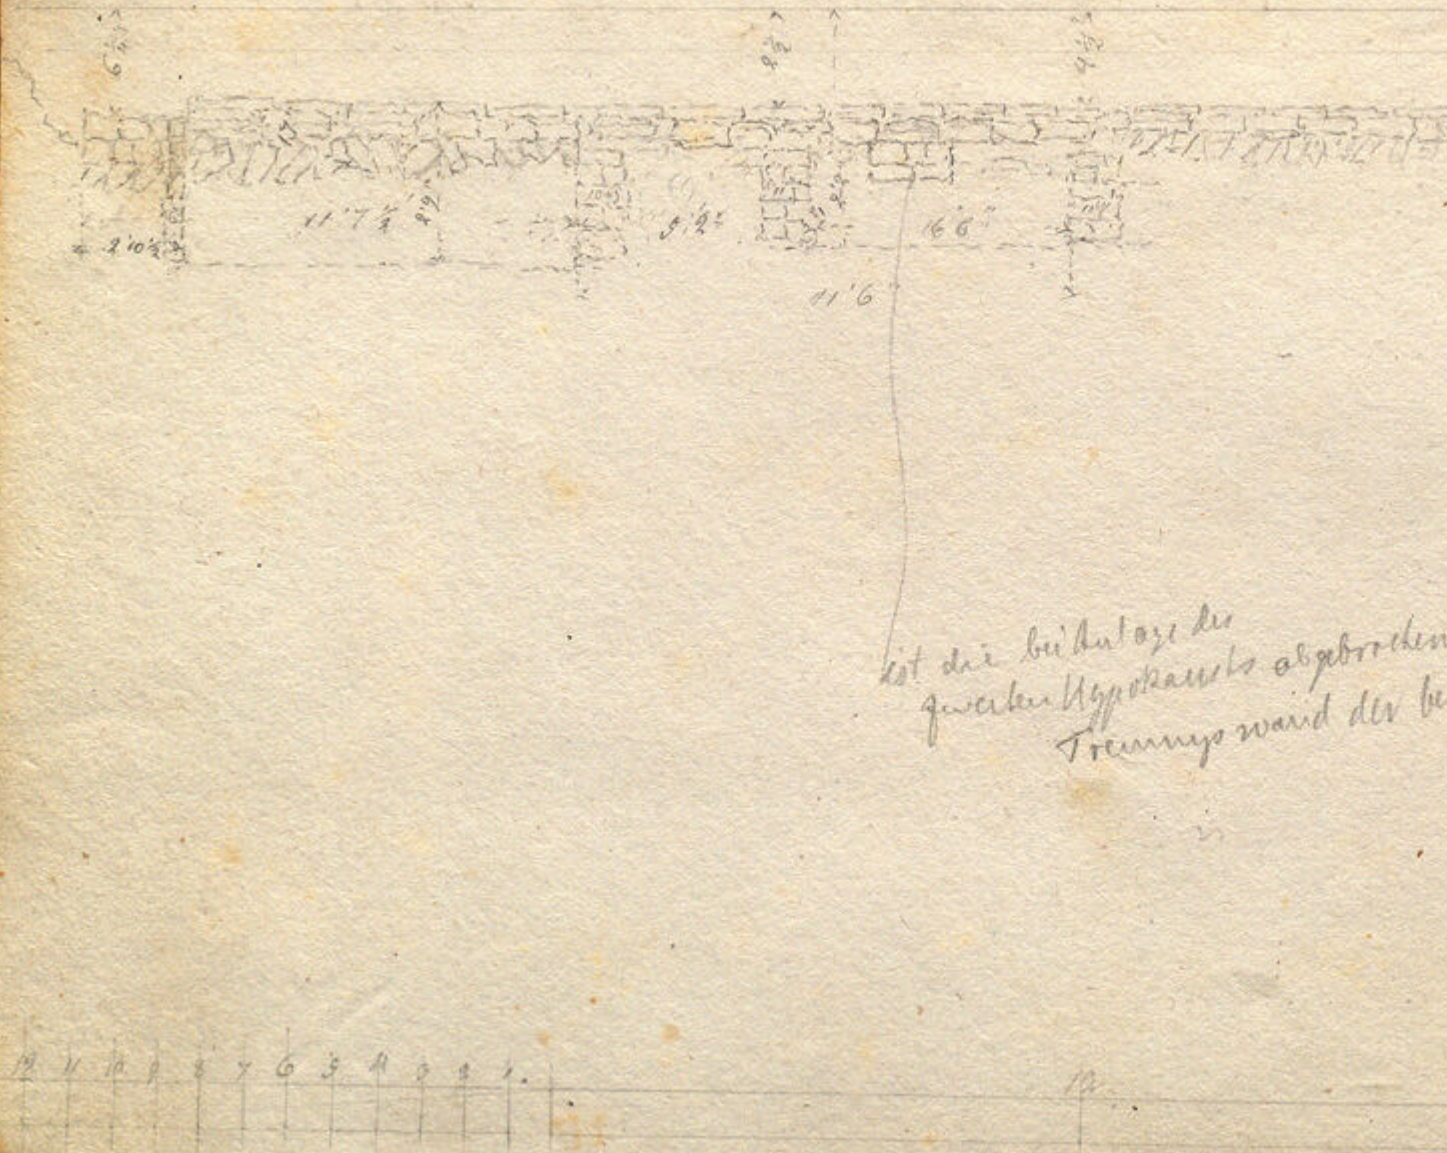 11' 7 1/2"
2' 10 1/2
5' 2"
6' 6"
11' 6"
ist die bei Anlage des
zweiten Hypokausts abgebrochen
Trennungswand der be
12 11 10 9 8 7 6 5 4 3 2 1.
10